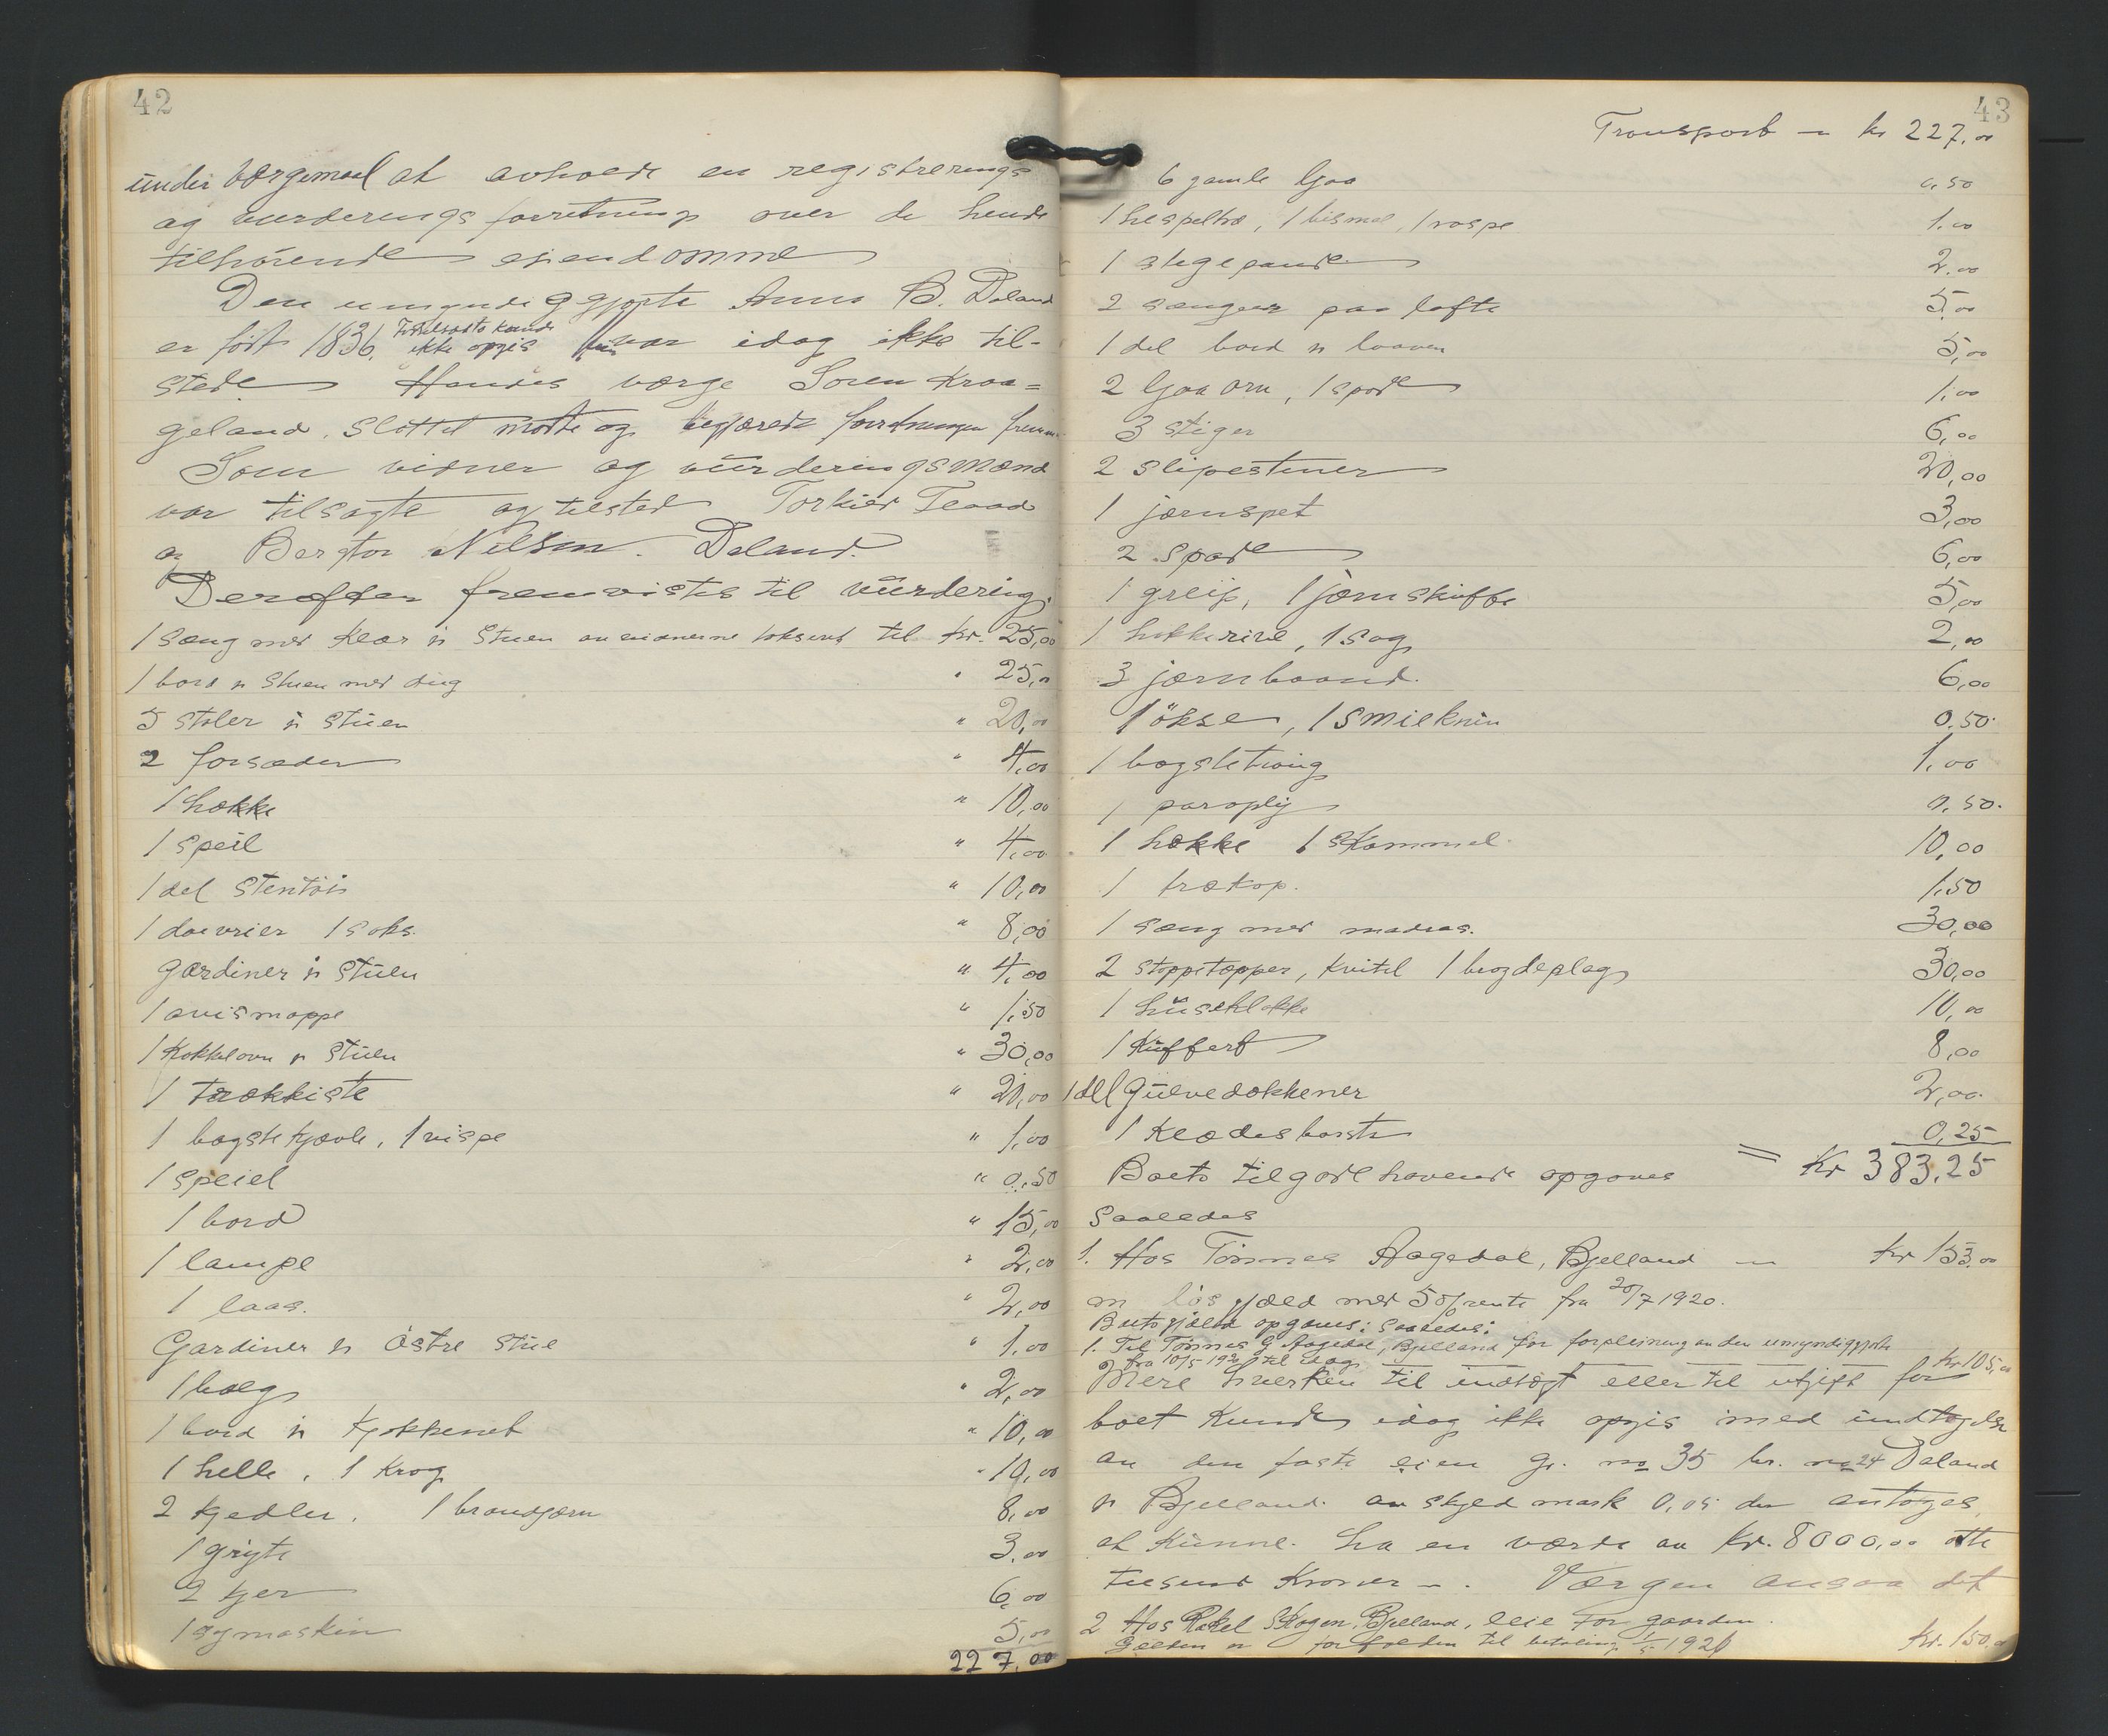 42
under værgemaal at avholde en registrerings
og vurderings forretning over de hende
tilhørende eiendomme
Den umyndiggjorte Anna B. Daland
er født 1836. Fødselsdato kunde ikke opgis hun var idag ikke til-
stede Hendes værge Soren Kraa=
geland, Slottet mødte og begjærede forretningen frem
Som vidner og vurderingsmænd
var tilsagte og tilstede Torkild
og Bergtor Nilsen. Daland.
Derefter fremvistes til vurdering.
1 seng med klær i stuen av vidnerne taksert til kr. 25,00
1 bord i stuen med dug " 25,00
5 stoler i stuen " 20,00
2 forsæder " 4,00
1 hække " 10,00
1 speil " 4,00
1 del stentøi " 10,00
1 1 saks. " 8,00
Gardiner i stuen " 4,00
1 avismappe " 1,50
1 Kakkelovn i stuen " 30,00
1 trækkiste " 20,00
1 bagstekjævle, 1 vispe " 1,00
1 speiel " 0,50
1 bord " 15,00
1 lampe " 2,00
1 laas. " 2,00
Gardiner i östre stue " 1,00
1 bælg " 2,00
1 bord i kjøkkenet " 10,00
1 helle, 1 krog " 10,00
2 kjedler, 1 brandjærn 8,00
1 gryte 3,00
2 kjer 6,00
1 symaskin 5,00
227,00
43
Transport - kr 227,00
6 gamle ljaa 0,50
1 hespeltræ, 1 bismer, 1 raspe 1,00
1 stegepande 2,00
2 senger paa lofte 5,00
1 del bord i laaven 5,00
2 ljaa orv, 1 spade 1,00
3 stiger 6,00
2 slipestener 20,00
1 jærnspet 3,00
2 spade 6,00
1 greip, 1 jærnskuffe 5,00
1 hakkerive, 1 sag 2,00
3 jærnbaand. 6,00
1 ökse, 1 smiekniv 0,50
1 bagstetraug 1,00
1 paraply 0,50
1 hække 1 skammel 10,00
1 trækop. 1,50
1 seng med madras. 30,00
2 stoppetepper, kvitel 1 bragdeplag 30,00
1 huseklokke 10,00
1 Kuffert 8,00
1 del gulvedækkener 2,00
1 Klædesbørste 0,25
= Kr 383,25
Boets tilgodehavende opgaves
saaledes
1. Hos Tønnes Aagedal, Bjelland - kr 153,00
løs gjæld med 5 % rente fra 20/7 1920.
Boets gjæld opgaves: saaledes:
1. Til Tønnes G Aagedal, Bjelland for forpleining av den umyndiggjorte
fra 10/5 1920 til idag kr 105,00
Mere hverken til indtægt eller til utgift for
boet kunde idag ikke opgis med undtagelse
av den faste eien gr. no 35 br. no 24 Daland
i Bjelland. av skyld mark 0,05 der antoges
at kunne ha en værde av kr. 8000,00 otte
tusend Kroner -. Værgen ansaa det
2 Hos Rakel Skogen, Bjelland, leie for gaarden.
Gjælden er forfalden til betaling 1920 kr. 150,00